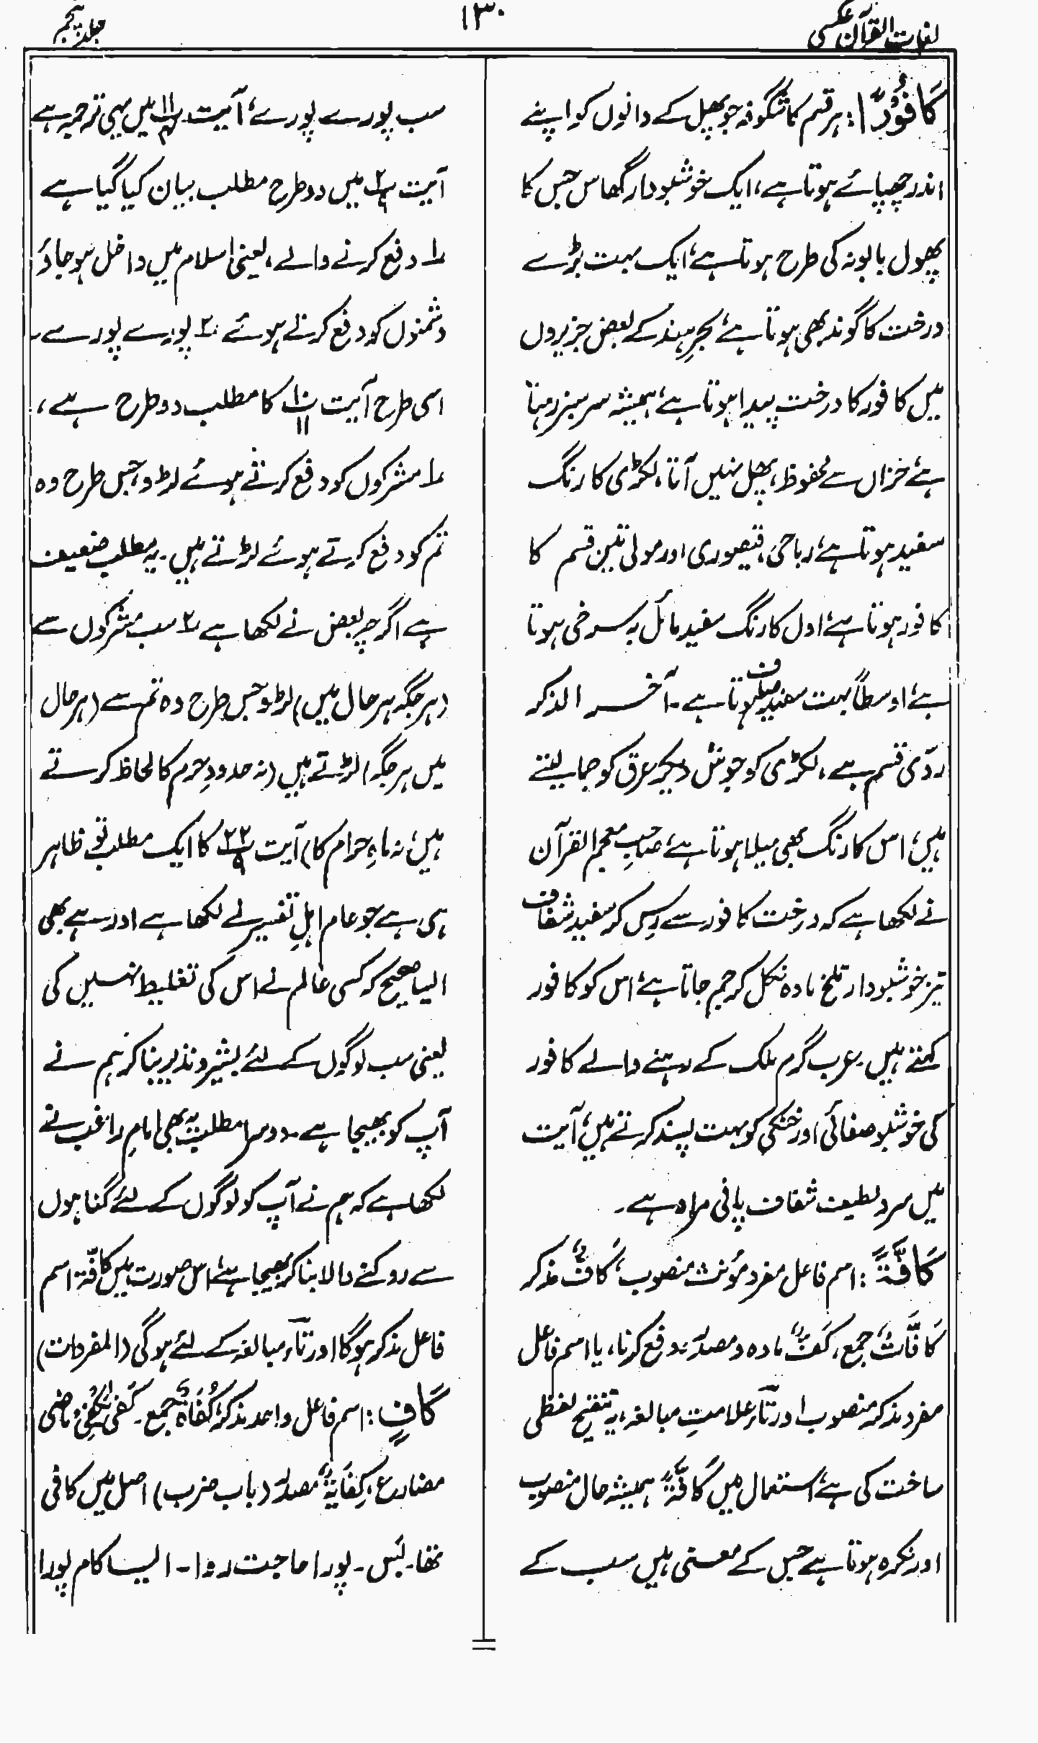 لغات القرآن عکسی
۱۳۰
جلد پنجم
کَافُوْرًا: ہر قسم کا شگوفہ جو پھل کے دانوں کو اپنے
اندر چھپائے ہوتا ہے، ایک خوشبودار گھاس جس کا
پھول بابونہ کی طرح ہوتا ہے، ایک بہت بڑے
درخت کا گوند بھی ہوتا ہے، بحرِ ہند کے بعض جزیروں
میں کافور کا درخت پیدا ہوتا ہے، ہمیشہ سرسبز رہتا
ہے خزاں سے محفوظ، پھل نہیں آتا، لکڑی کا رنگ
سفید ہوتا ہے، رباحی، قیصوری اور مولی تین قسم کا
کافور ہوتا ہے، اول کا رنگ سفید مائل بہ سرخی ہوتا
ہے، اوسطاً بہت سفید ہوتا ہے۔ آخر الذکر
ردّی قسم ہے، لکڑی کو جوش دیکر عرق کو جما لیتے
ہیں، اس کا رنگ بھی میلا ہوتا ہے، صاحبِ معجم القرآن
نے لکھا ہے کہ درخت کافور سے رِس کر سفید شفاف
تیز خوشبودار تلخ مادہ نکل کر جم جاتا ہے، اس کو کافور
کہتے ہیں۔ عرب گرم ملک کے رہنے والے کافور
کی خوشبو صفائی اور خنکی کو بہت پسند کرتے ہیں، آیت
میں سرد لطیف شفاف پانی مراد ہے۔
کَافَّۃً: اسم فاعل مفرد مؤنث منصوب، کَافٌّ مذکر
کَافَّاتٌ جمع، کَفٌّ مادہ و مصدر، دفع کرنا، یا اسم فاعل
مفرد مذکر منصوب اور تاء علامتِ مبالغہ، یہ تنقیح لفظی
ساخت کی ہے، استعمال میں کَافَّۃً ہمیشہ حال منصوب
اور نکرہ ہوتا ہے جس کے معنی ہیں سب کے
سب پورے پورے، آیت میں یہی ترجمہ ہے
آیت میں دو طرح مطلب بیان کیا گیا ہے
۱۔ دفع کرنے والے، یعنی اسلام میں داخل ہو جاؤ
دشمنوں کو دفع کرتے ہوئے ۲۔ پورے پورے۔
اسی طرح آیت کا مطلب دو طرح ہے،
۱۔ مشرکوں کو دفع کرتے ہوئے لڑو، جس طرح وہ
تم کو دفع کرتے ہوئے لڑتے ہیں۔ یہ مطلب ضعیف
ہے اگرچہ بعض نے لکھا ہے ۲۔ سب مشرکوں سے
(ہر جگہ ہر حال میں) لڑو جس طرح وہ تم سے (ہر حال
میں ہر جگہ) لڑتے ہیں (نہ حدودِ حرم کا لحاظ کرتے
ہیں، نہ ماہِ حرام کا) آیت ۲۲/۹ کا ایک مطلب تو ظاہر
ہی ہے جو عام اہلِ تفسیر نے لکھا ہے اور ہے بھی
ایسا صحیح کہ کسی عالم نے اس کی تغلیط نہیں کی
یعنی سب لوگوں کے لئے بشیر و نذیر بنا کر ہم نے
آپ کو بھیجا ہے۔ دوسرا مطلب یہ بھی امام راغب نے
لکھا ہے کہ ہم نے آپ کو لوگوں کے لئے گناہوں
سے روکنے والا بنا کر بھیجا ہے، اس صورت میں کافّۃ اسم
فاعل مذکر ہوگا اور تاء مبالغہ کے لئے ہوگی (المفردات)
کَافٍ: اسم فاعل واحد مذکر، کُفَاۃٌ جمع۔ کَفٰی یَکْفِیْ، ماضی
مضارع، کِفَایَۃٌ مصدر (باب ضرب) اصل میں کافی
تھا۔ بس۔ پورا حاجت روا۔ ایسا کام پورا